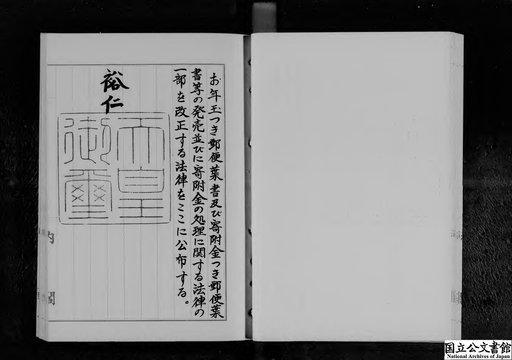 お年玉つき郵便葉書及び寄附金つき郵便葉
書等の発売並びに寄附金の処理に関する法律の
一部を改正する法律をここに公布する。
裕仁
天皇
御璽
内閣
国立公文書館
National Archives of Japan